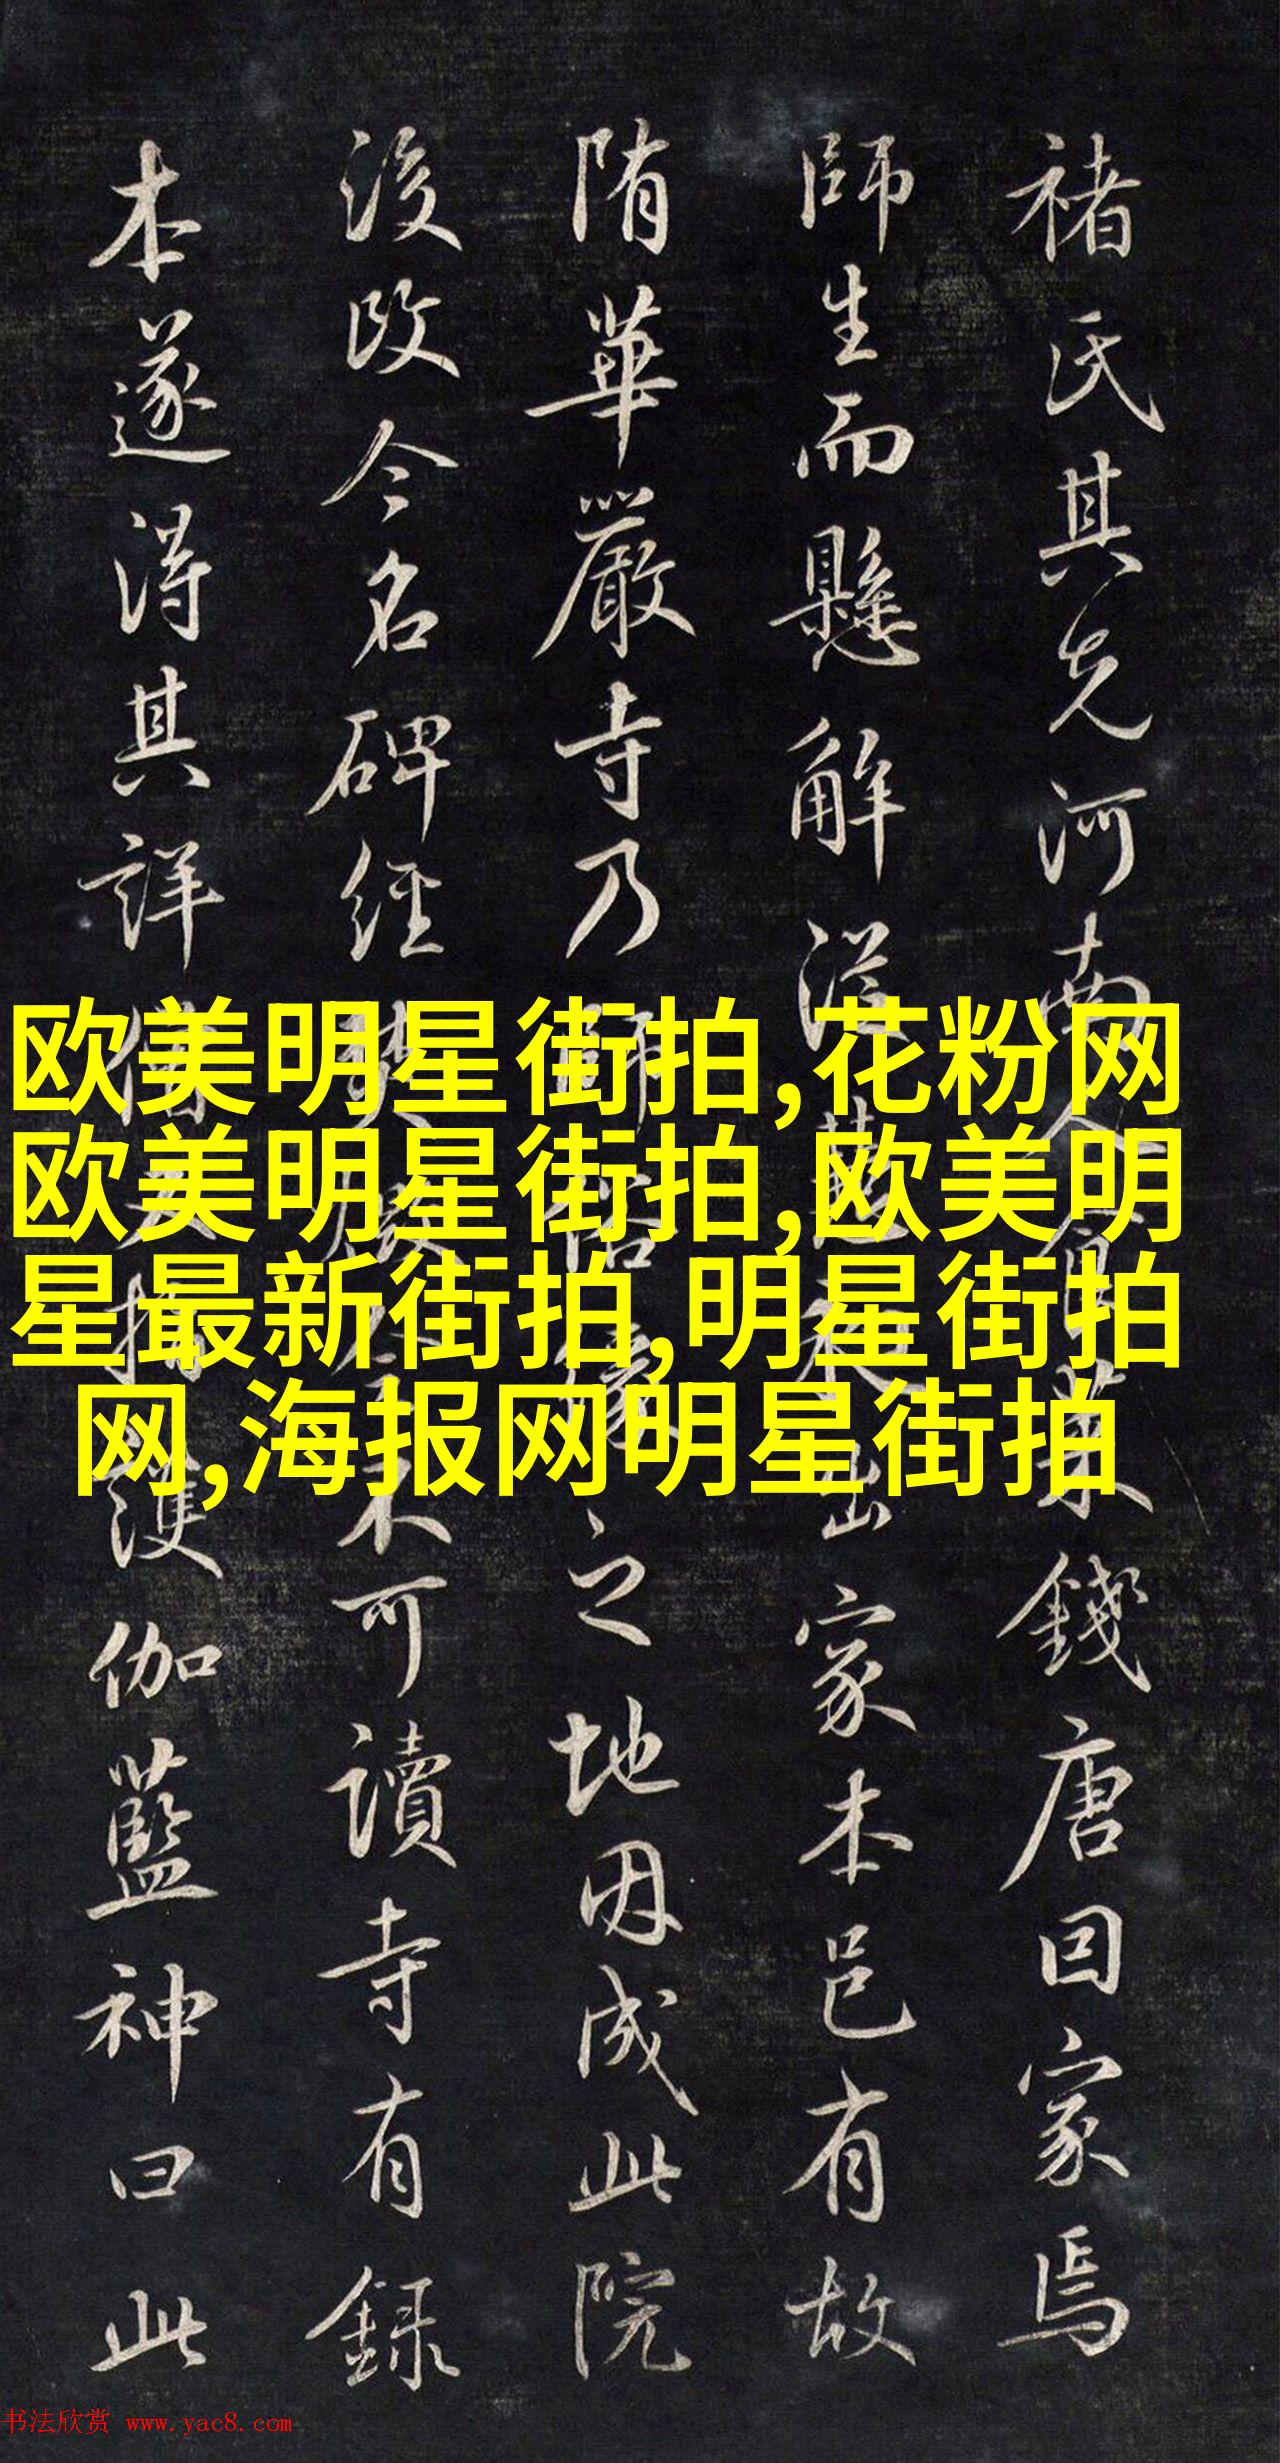 褚氏其先河南人官業錢唐因家焉
師生而懸解從慧出家本邑有故
隋華嚴寺乃師之地因成此院
後改今名碑經可讀寺有録
本遂得其詳護伽藍神曰此
欧美明星街拍,花粉网
欧美明星街拍,欧美明
星最新街拍,明星街拍
网,海报网明星街拍
书法欣赏 www.yac8.com